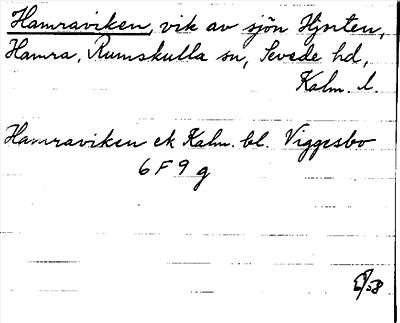 Hamraviken, vik av sjön Hjorten,
Hamra, Rumskulla sn, Sevede hd,
Kalm. l.
Hamraviken ek Kalm. bl. Viggesbo
6 F 9 g